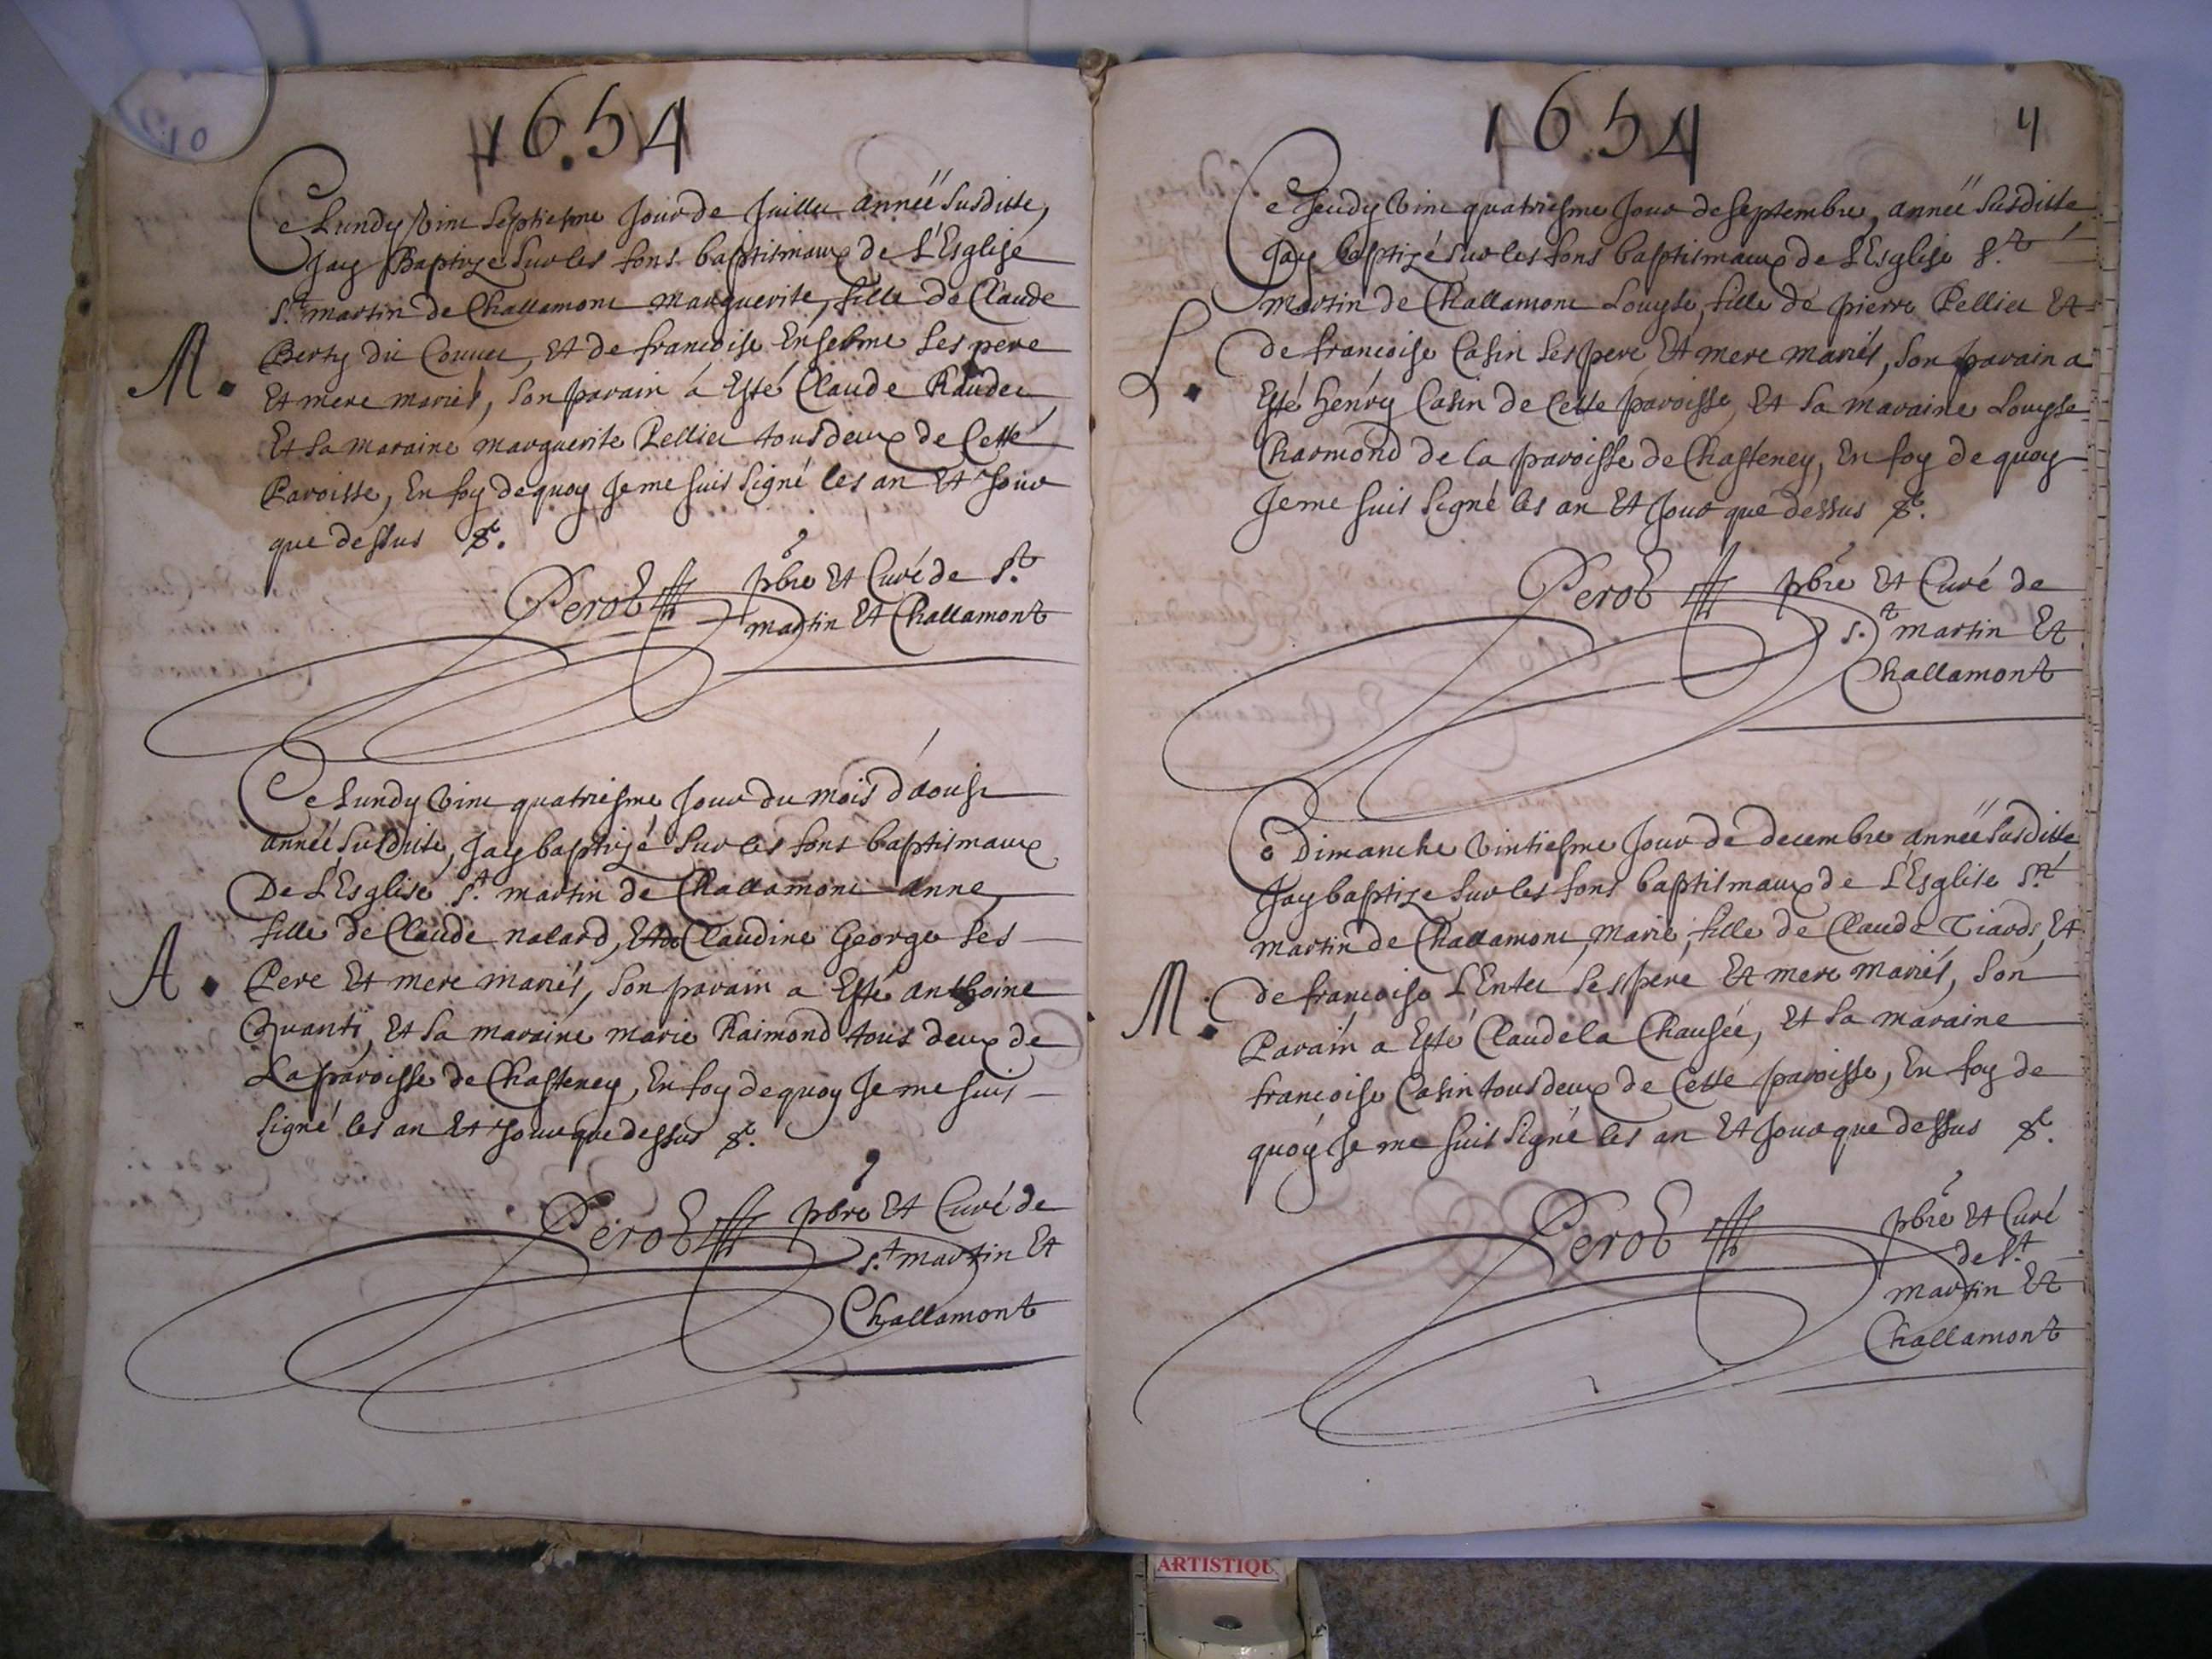 1654
Ce Lundy vint septiesme Jour de Juillet année susditte,
Jay Baptize sur les fons baptismaux de L'Esglise
St martin de Challamont marguerite, fille de Claude
Berty dit Couuet, Et de francoise Enselme ses pere
M.
Et mere mariés, son parain á Esté Claude Raudet
Et sa maraine marguerite Pelliet tous deux de Cette
Paroisse, En foy de quoy Je me suis signé les an Et Jour
que dessus &c.
Perot pbre Et Curé de St
martin Et Challamont
Ce Lundy vint quatriesme Jour du mois d'aoust
année susditte, Jay baptizé sur les fons baptismaux
De L'Esglise St martin de Challamont anne,
fille de Claude nalard, Et de Claudine George ses
A.
Pere Et mere mariés, son parain a Esté anthoine
Quanti, Et sa maraine marie Raimond tous deux de
La paroisse de Chasteney, En foy de quoy Je me suis
signé les an Et Jour que dessus &c.
Perot pbre Et Curé de
St martin Et
Challamont
1654
4
Ce Jeudy vint quatriesme Jour de septembre, année susditte,
Jay baptizé sur les fons baptismaux de L'Esglise St
martin de Challamont Louyse, fille de pierre Pelliet Et
L.
de francoise Casin ses pere Et mere mariés, son parain a
Esté henry Casin de Cette paroisse, Et sa maraine Louyse
Charmond de la paroisse de Chasteney, En foy de quoy
Je me suis signé les an Et Jour que dessus &c.
Perot pbre Et Curé de
St martin Et
Challamont
Ce Dimanche vintiesme Jour de decembre année susditte
Jay baptize sur les fons baptismaux de L'Esglise St
martin de Challamont, marie, fille de Claude Tiard, Et
de francoise L'Entet ses pere Et mere mariés, son
M.
Parain a Esté Claude la Chausée, Et sa maraine
francoise Casin tous deux de Cette paroisse, En foy de
quoy Je me suis signé les an Et Jour que dessus &c.
Perot pbre Et Curé
de St
martin Et
Challamont
10
ARTISTIQU